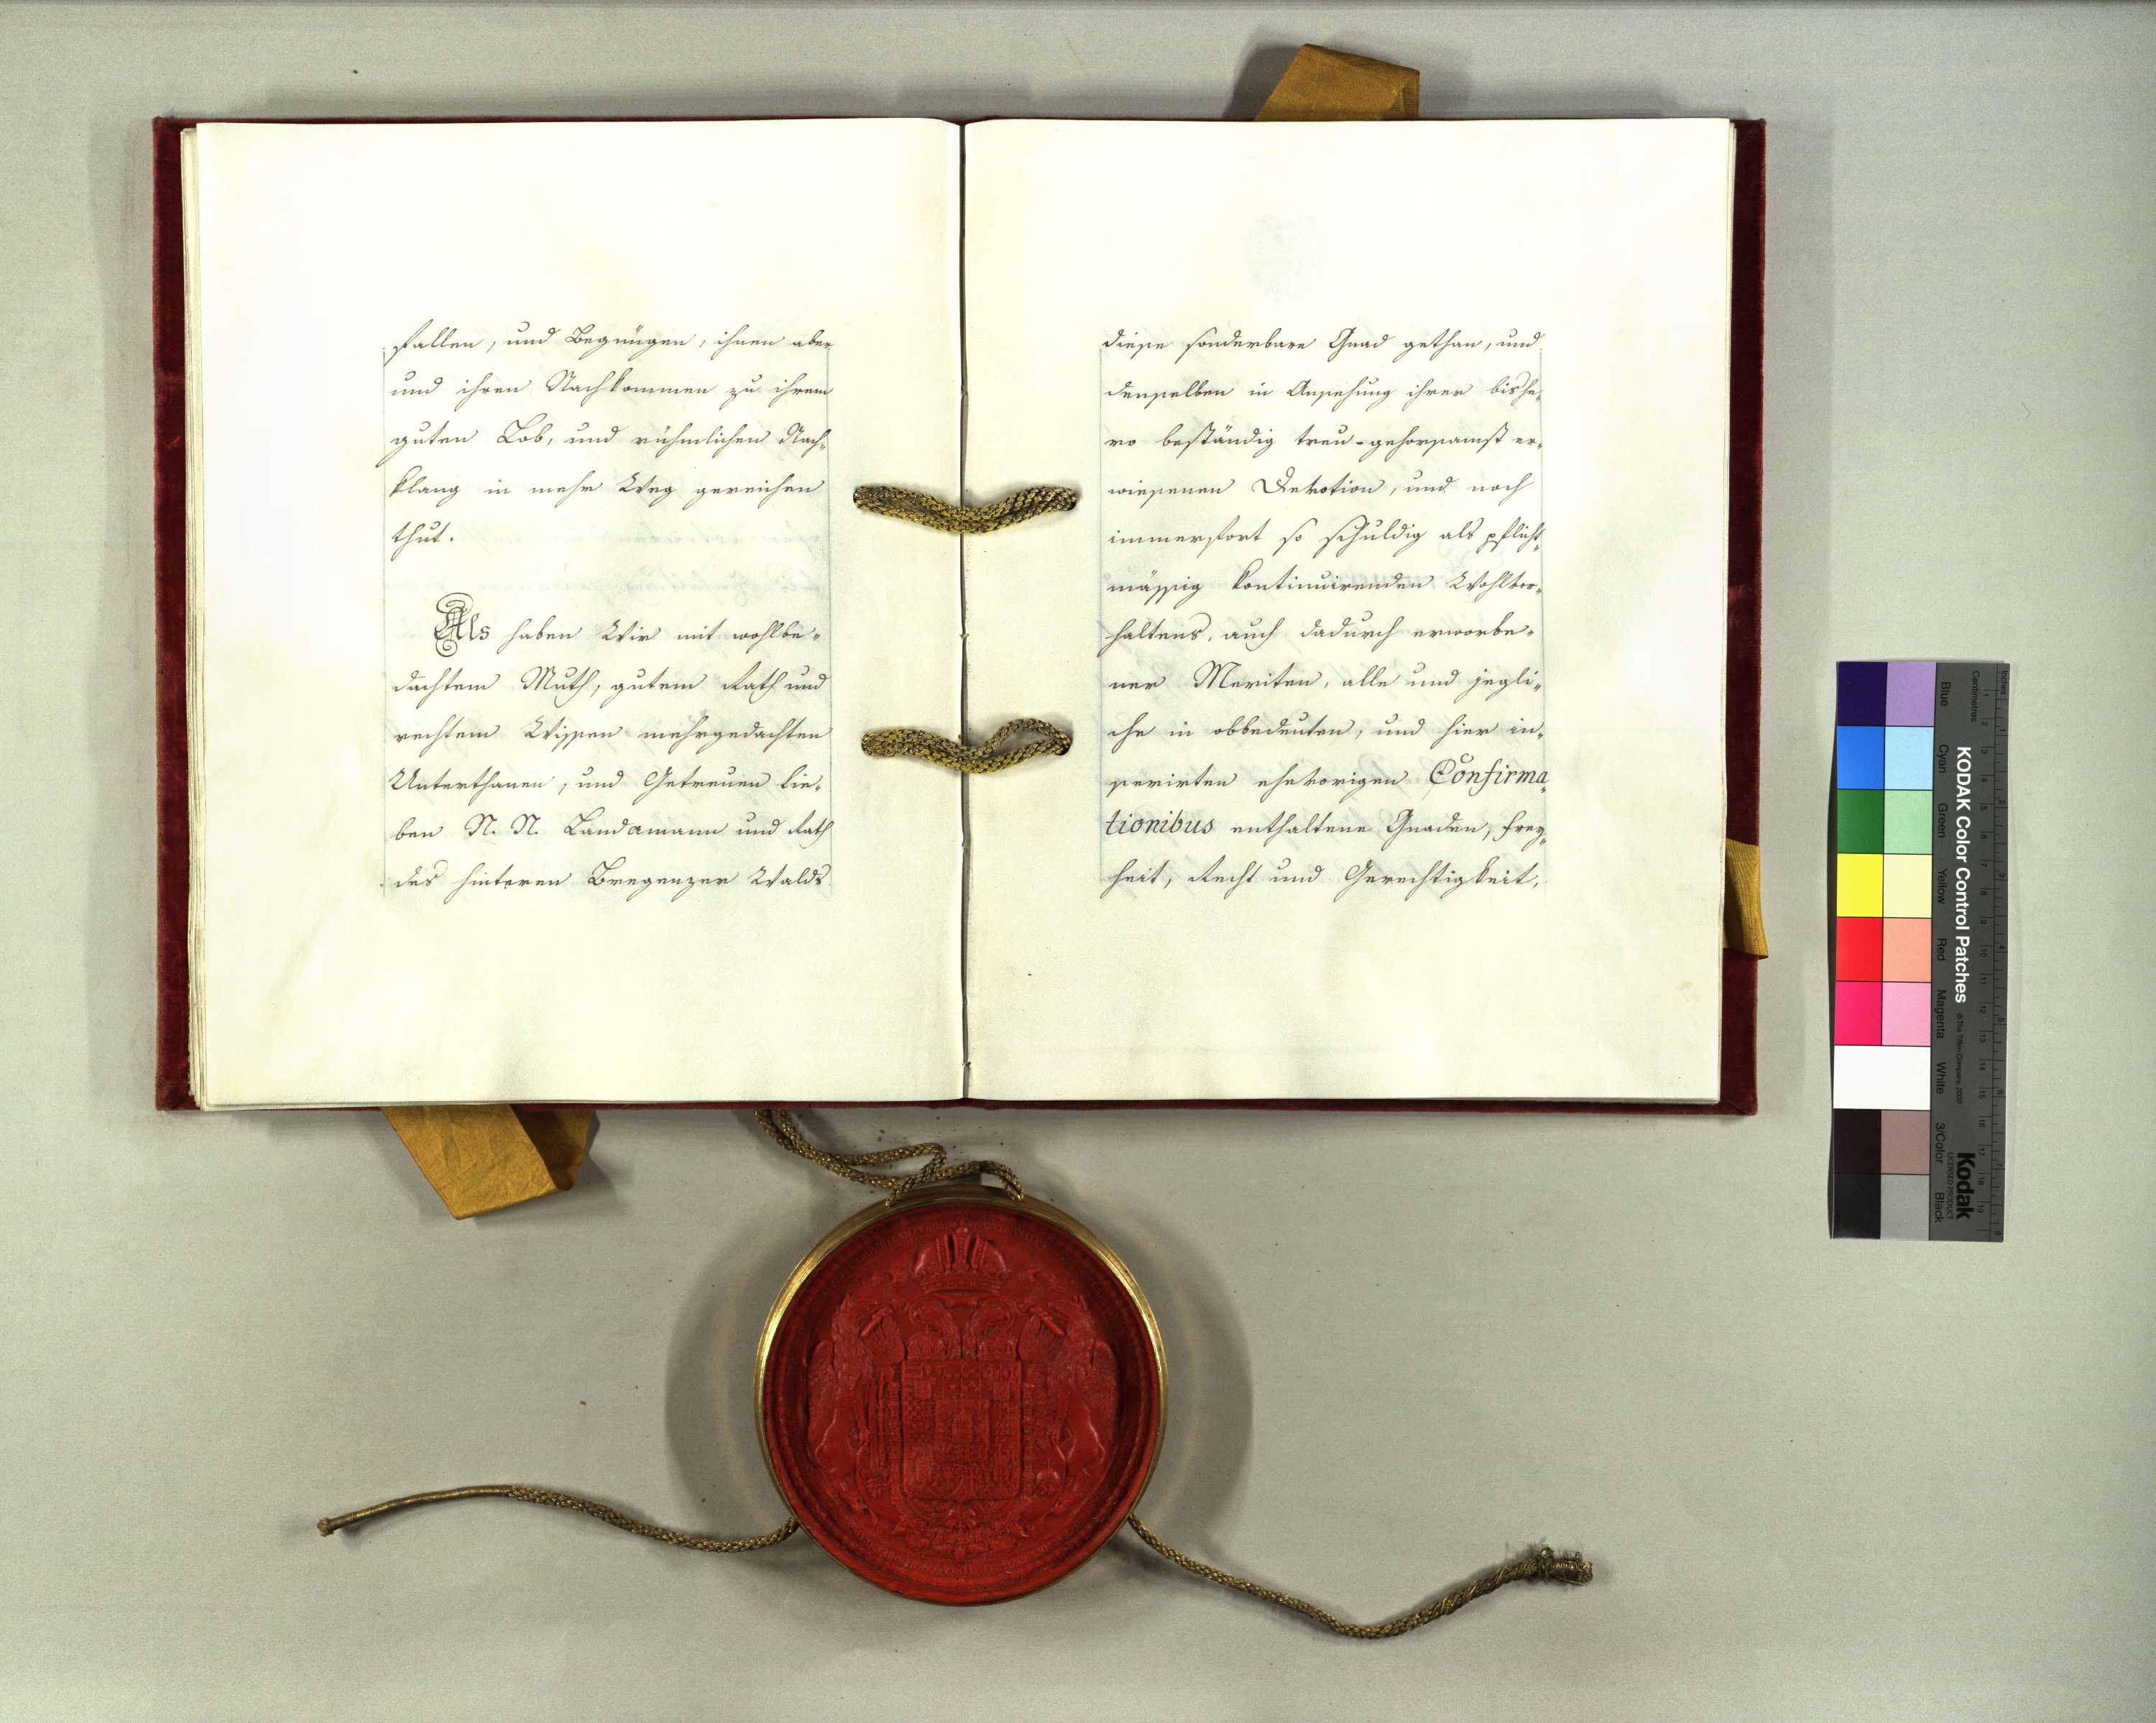 fallen, und Begnügen, ihnen aber
und ihren Nachkommen zu ihrem
guten Lob, und rühmlichen Nach-
klang in mehr Weg gereichen
thut.
Als haben Wir mit wohlbe-
dachtem Muth, gutem Rath und
rechtem Wissen mehrgedachten
Unterthanen, und Getreuen lie-
ben N. N. Landamann und Rath
des hinteren Bregenzer Walds
diese sonderbare Gnad gethan, und
denselben in Ansehung ihrer bishe-
ro beständig treu-gehorsamst er-
wiesenen Devotion, und noch
immerfort so schuldig als pflicht-
mässig kontinuirenden Wohlver-
haltens, auch dadurch erworbe-
ner Meriten, alle und jegli-
che in obbedeuten, und hier in-
serirten ehevorigen Confirma-
tionibus enthaltene Gnaden, Frey-
heit, Recht und Gerechtigkeit,
KODAK Color Control Patches
© The Tiffen Company, 2000
Kodak
LICENSED PRODUCT
Inches
Centimetres
Blue
Cyan
Green
Yellow
Red
Magenta
White
3/Color
Black
1 2 3 4 5 6 7 8 9 10 11 12 13 14 15 16 17 18 19
1 2 3 4 5 6 7 8